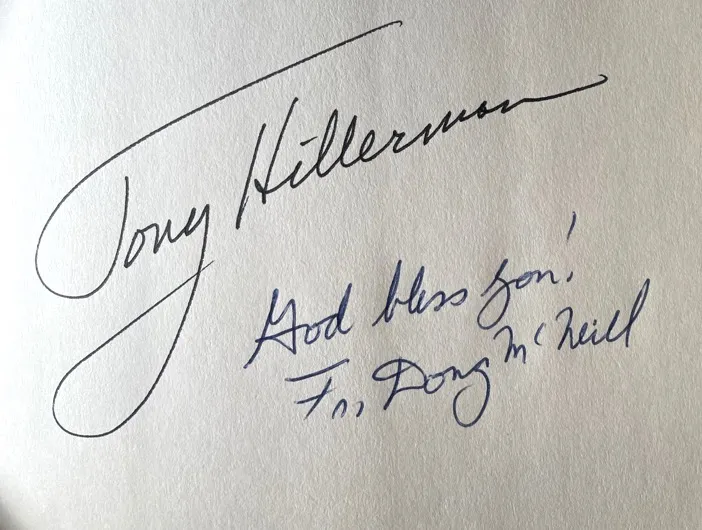 Tony Hillerman
God bless you!
Fr. Doug McNeill